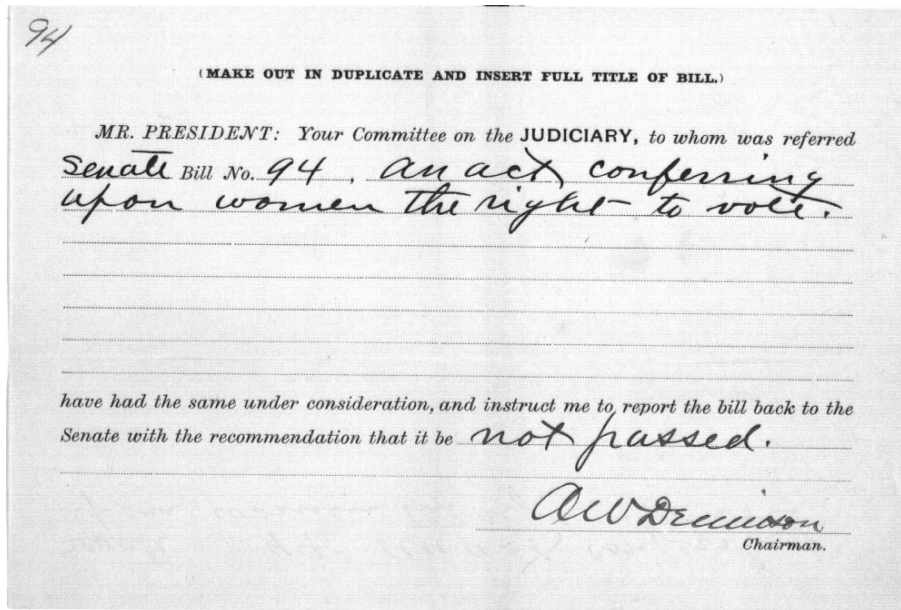 94
(MAKE OUT IN DUPLICATE AND INSERT FULL TITLE OF BILL.)
MR. PRESIDENT: Your Committee on the JUDICIARY, to whom was referred
Senate Bill No. 94. An act, conferring
upon women the right to vote.
have had the same under consideration, and instruct me to report the bill back to the
Senate with the recommendation that it be not passed.
A W Dennison
Chairman.